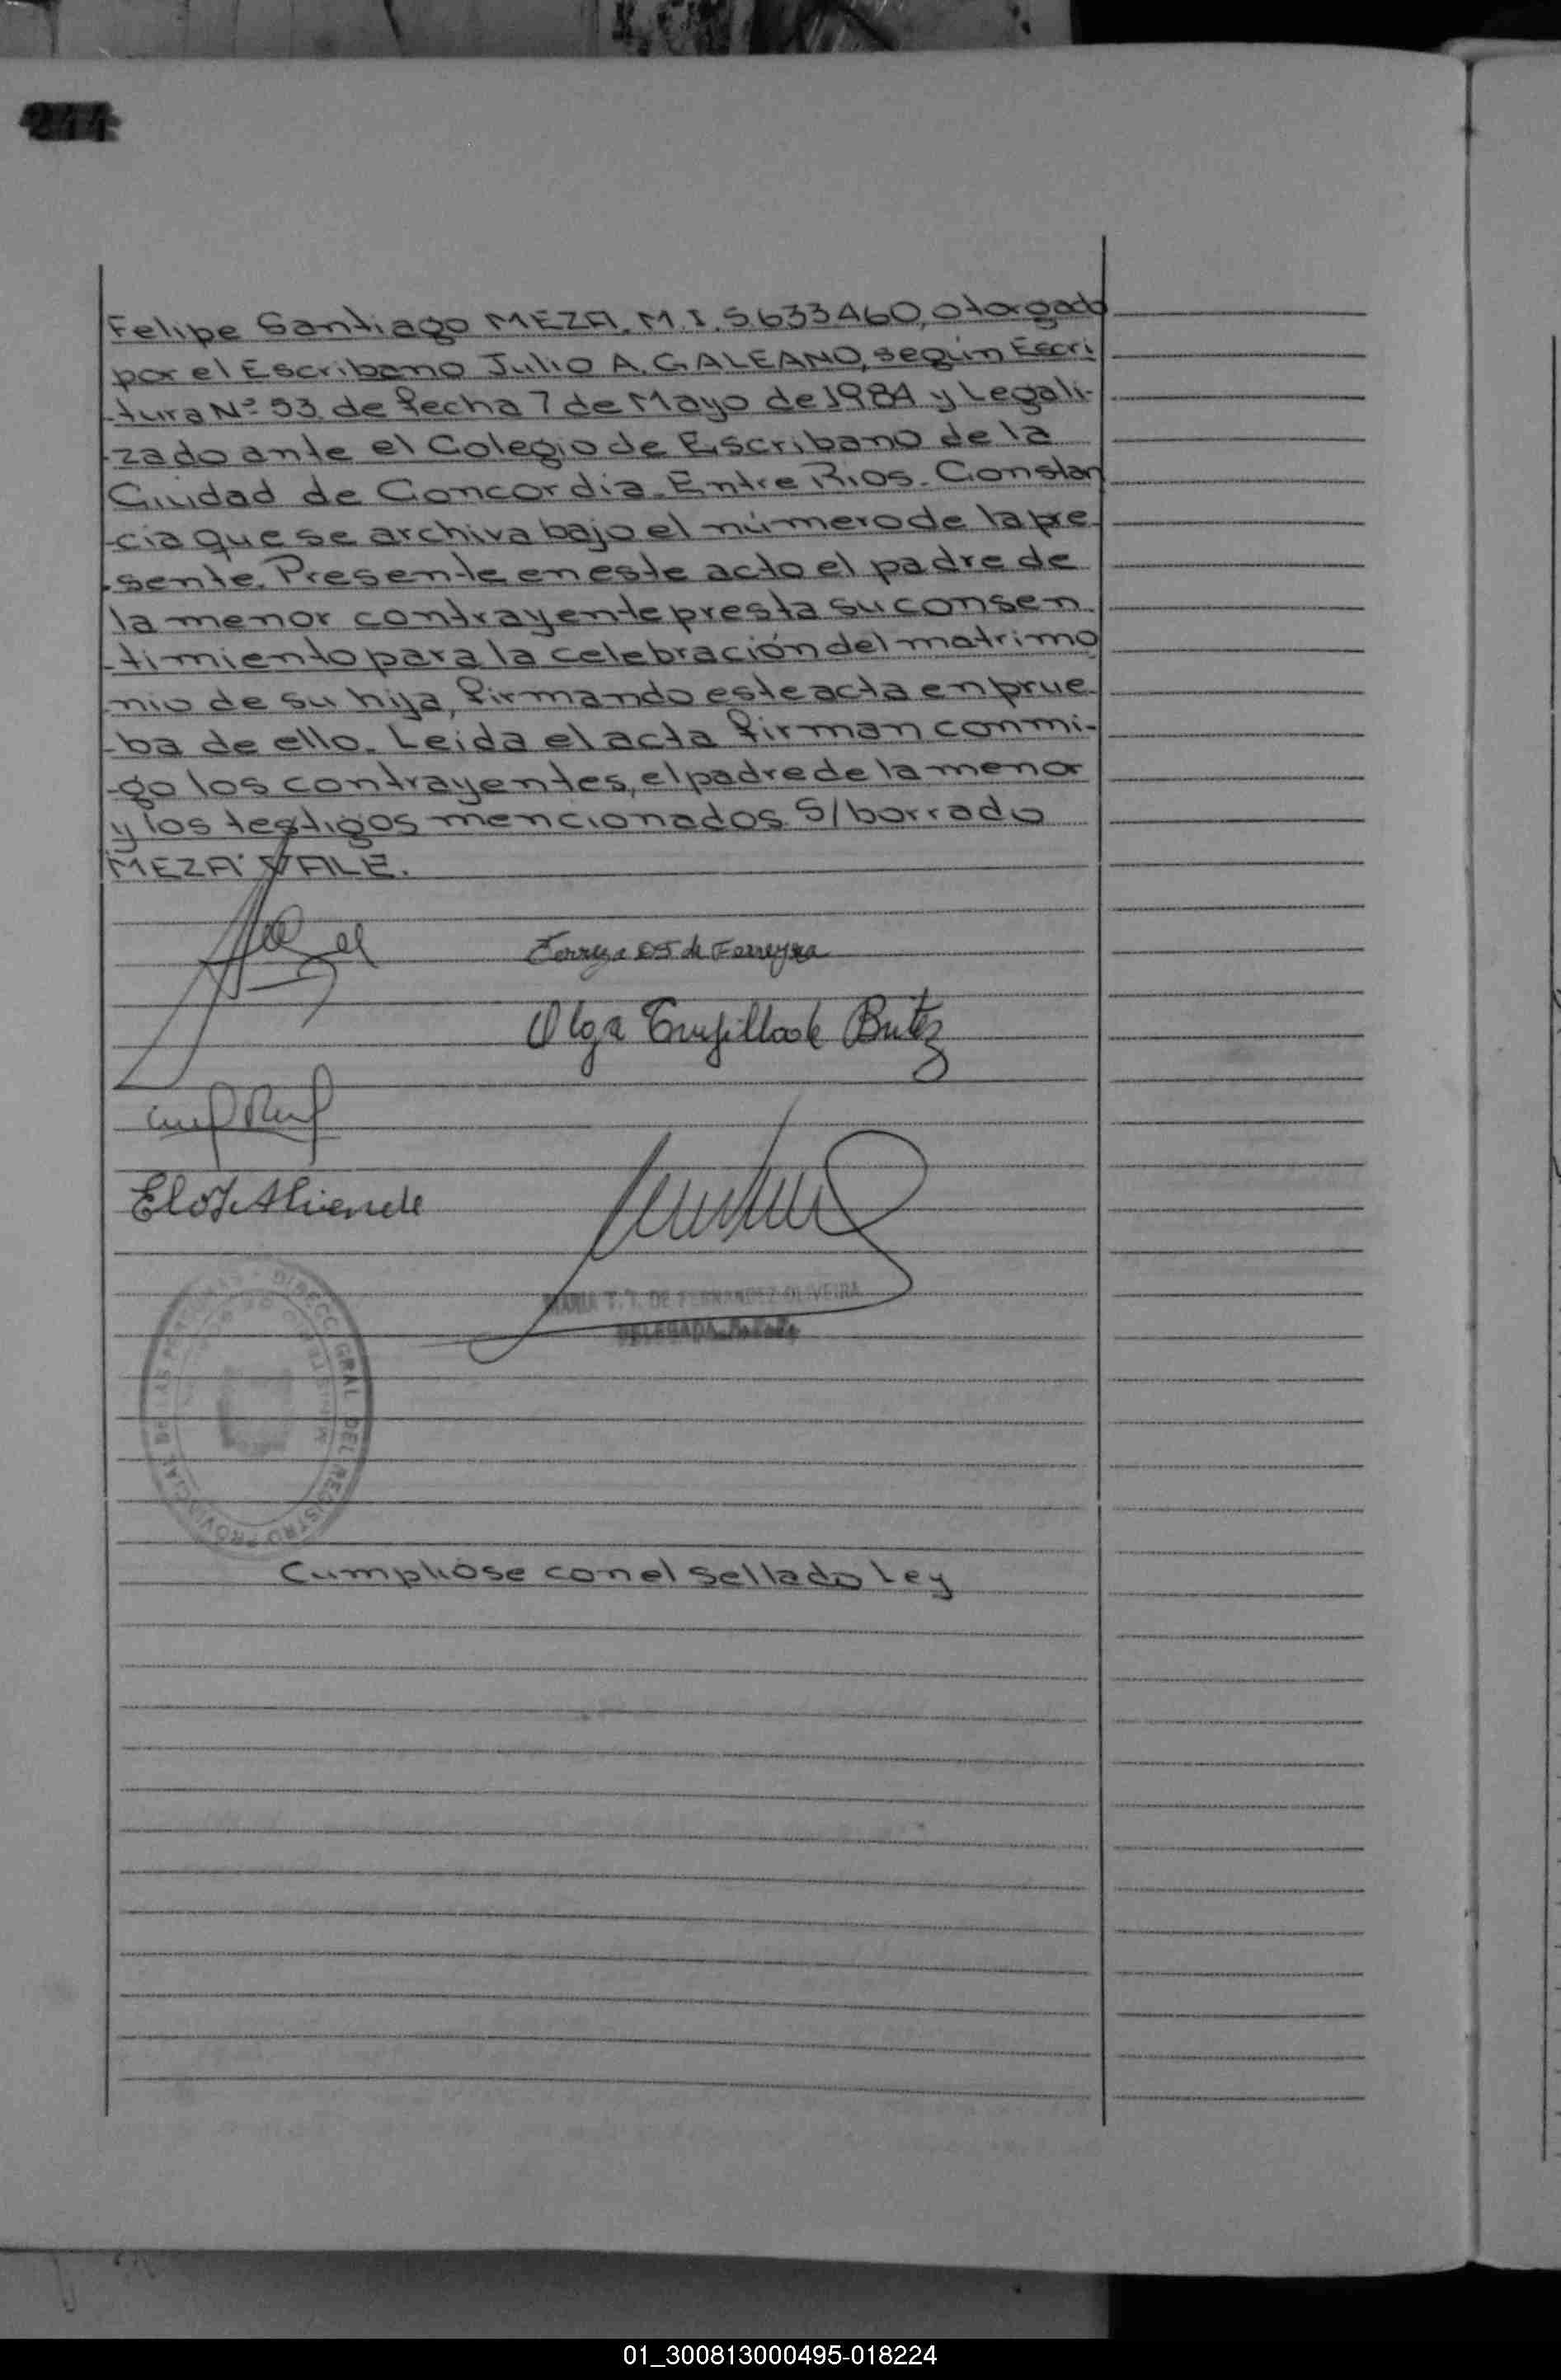 244
Felipe Santiago MEZA. M.I. 5.633.460, otorgado
por el Escribano Julio A. GALEANO, según Escri
-tura Nº 93 de fecha 7 de Mayo de 1984 y Legali-
-zado ante el Colegio de Escribano de la
Ciudad de Concordia - Entre Rios. Constan
-cia que se archiva bajo el número de la pre
-sente. Presente en este acto el padre de
la menor contrayente presta su consen
-timiento para la celebración del matrimo
-nio de su hija, firmando este acta en prue
-ba de ello. Leida el acta firman conmi-
-go los contrayentes, el padre de la menor
y los testigos mencionados S/borrado
MEZA" VALE.
de Ferreyra
Olga Trujillo de Butez
Aliende
MARIA T. T. DE FERNANDEZ OLIVEIRA
DELEGADA
DIRECC. GRAL. DEL REGISTRO PROVINCIAL DE LAS PERSONAS
MINISTERIO DE
Cumplióse con el sellado Ley
01_300813000495-018224